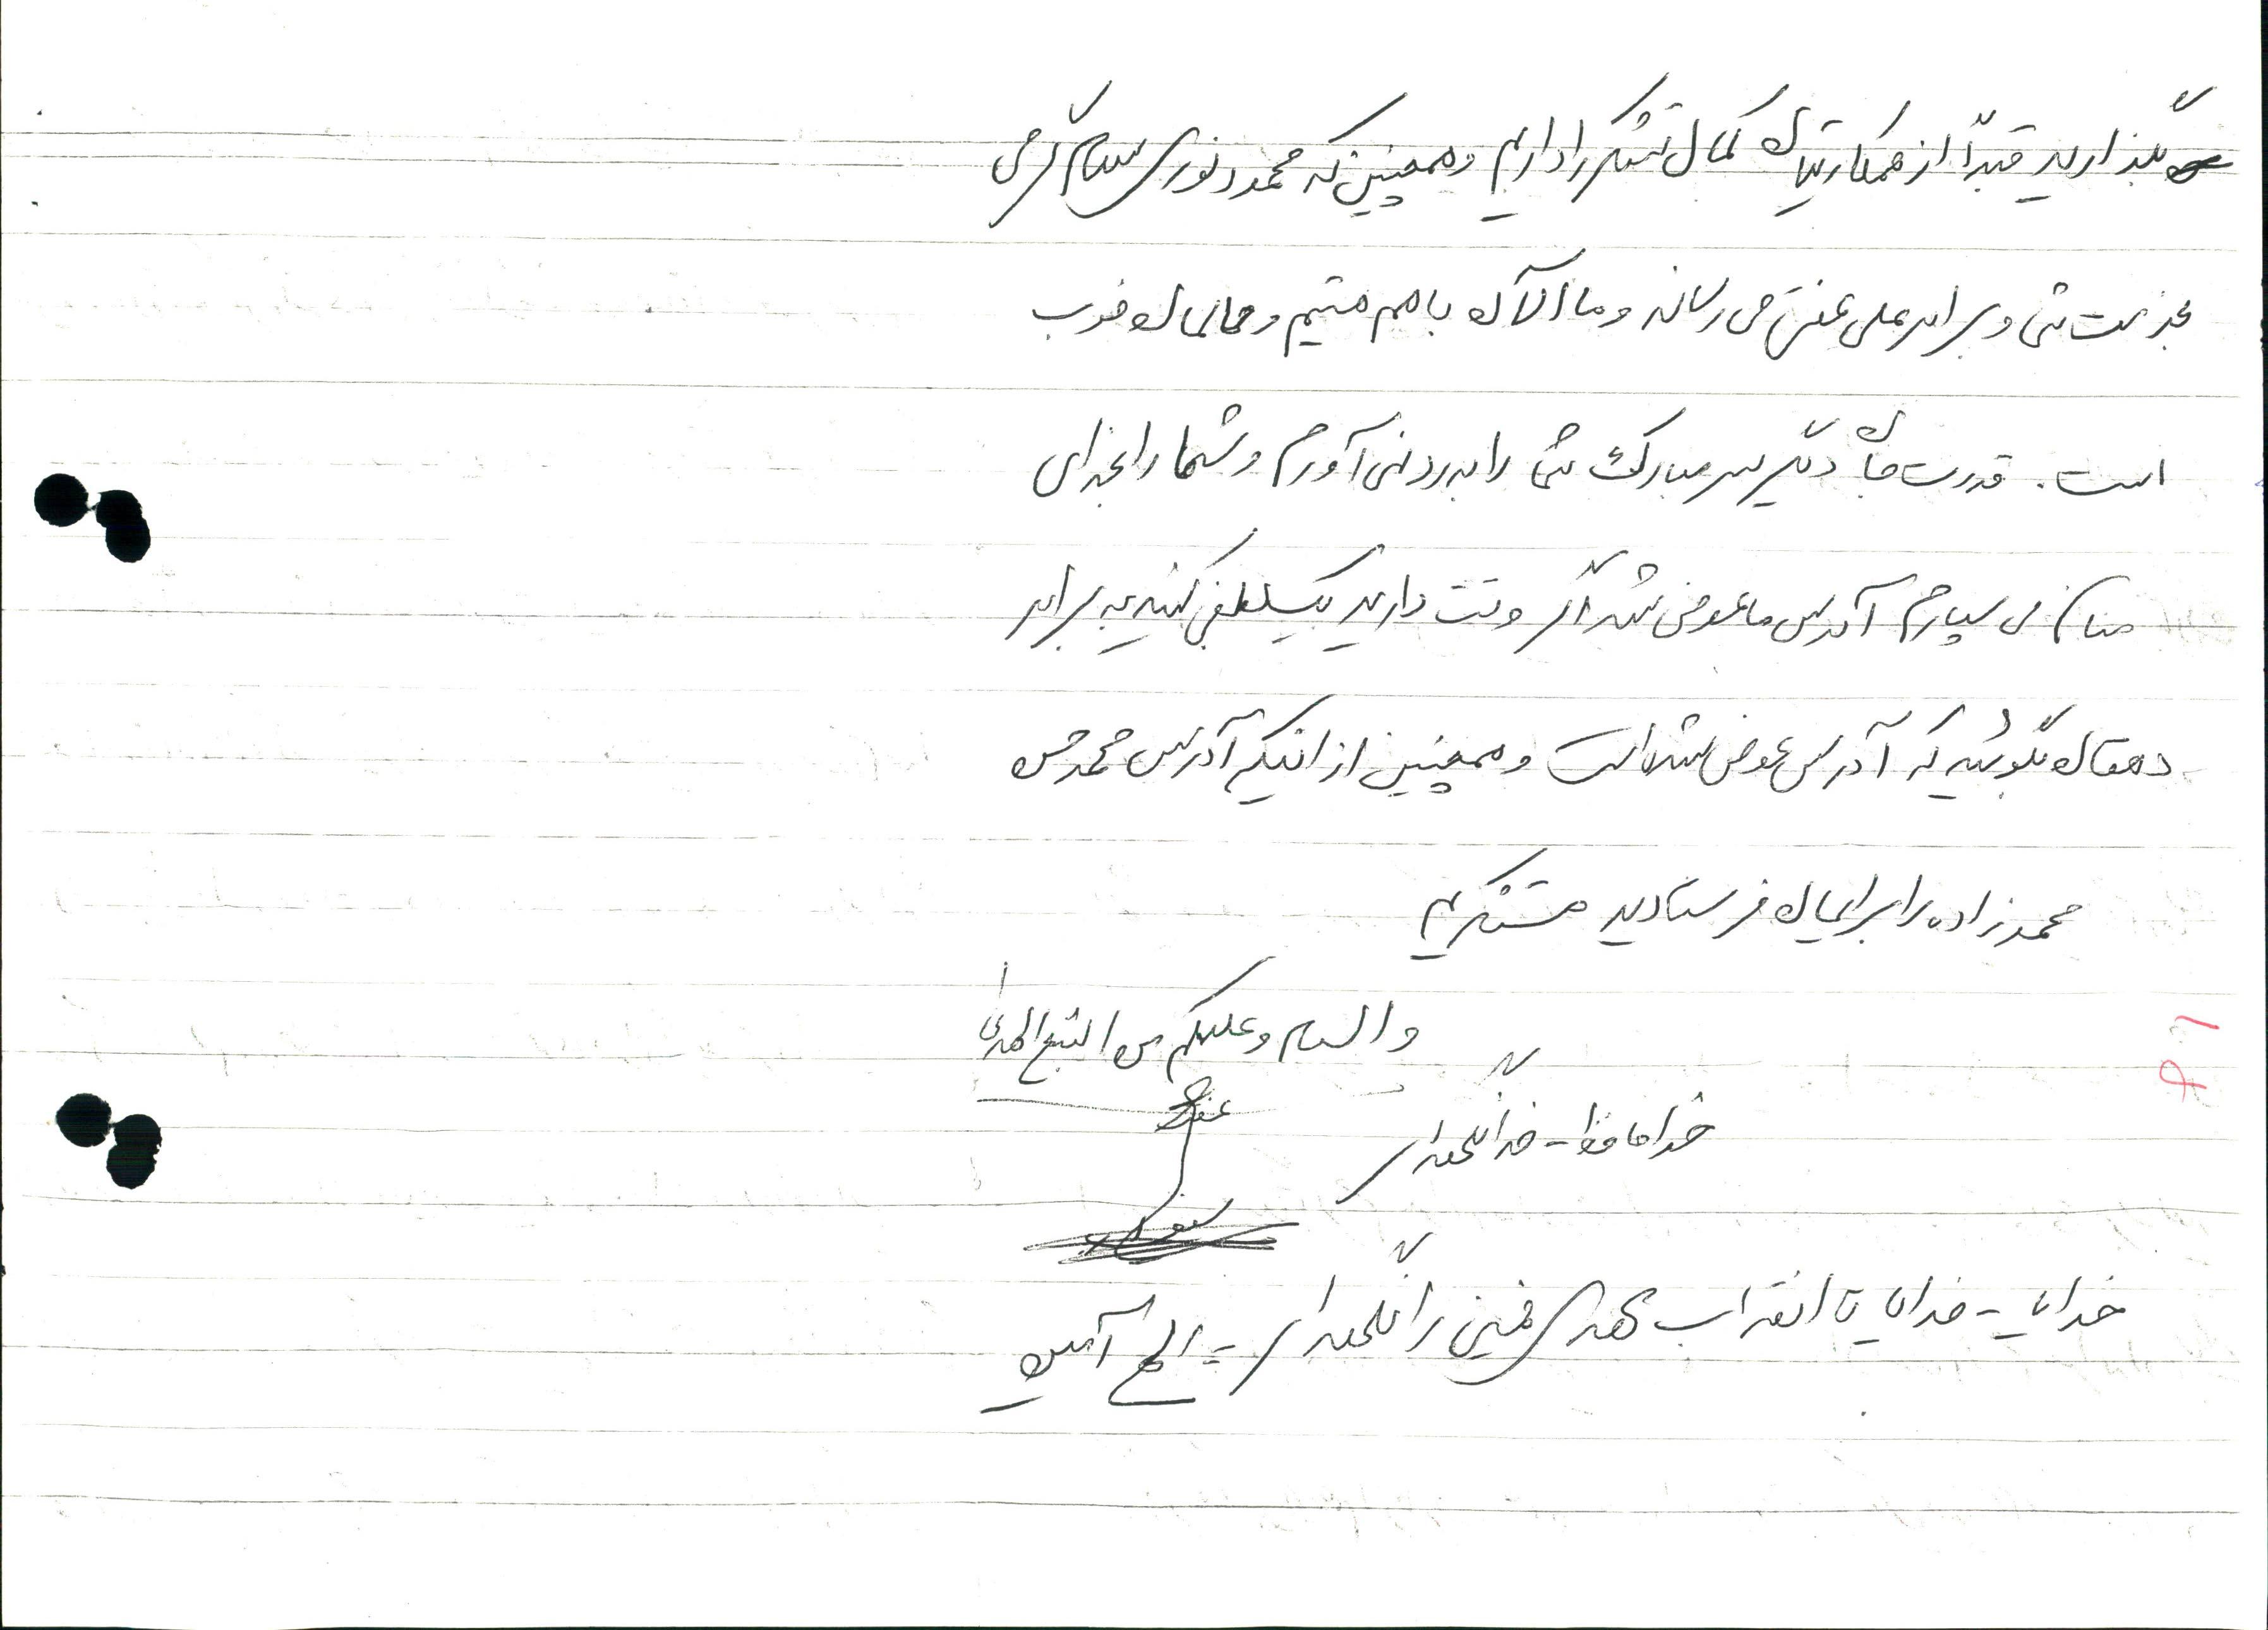 بگذارید قبلاً از همکاریتان کمال تشکر را داریم و همچنین که محمود نوری سلام گرمی
بخدمت شما و برادر علی می رساند و ما الآن با هم هستیم و حالمان خوب
است. قدرت جان دیگر سر مبارک شما را بدرد نمی آورم و شما را بخدای
منان می سپارم آدرس ما عوض شد اگر وقت دارید یک لطفی بکنید به برادر
دهقان بگوئید که آدرس عوض شده است و همچنین از اینکه آدرس محمد حسن
محمدزاده را برایمان فرستادید متشکریم
والسلام و علیکم من التبع الهدی
خداحافظ - خدانگهدار
خدایا - خدایا تا انقلاب مهدی خمینی را نگهدار - الهی آمین